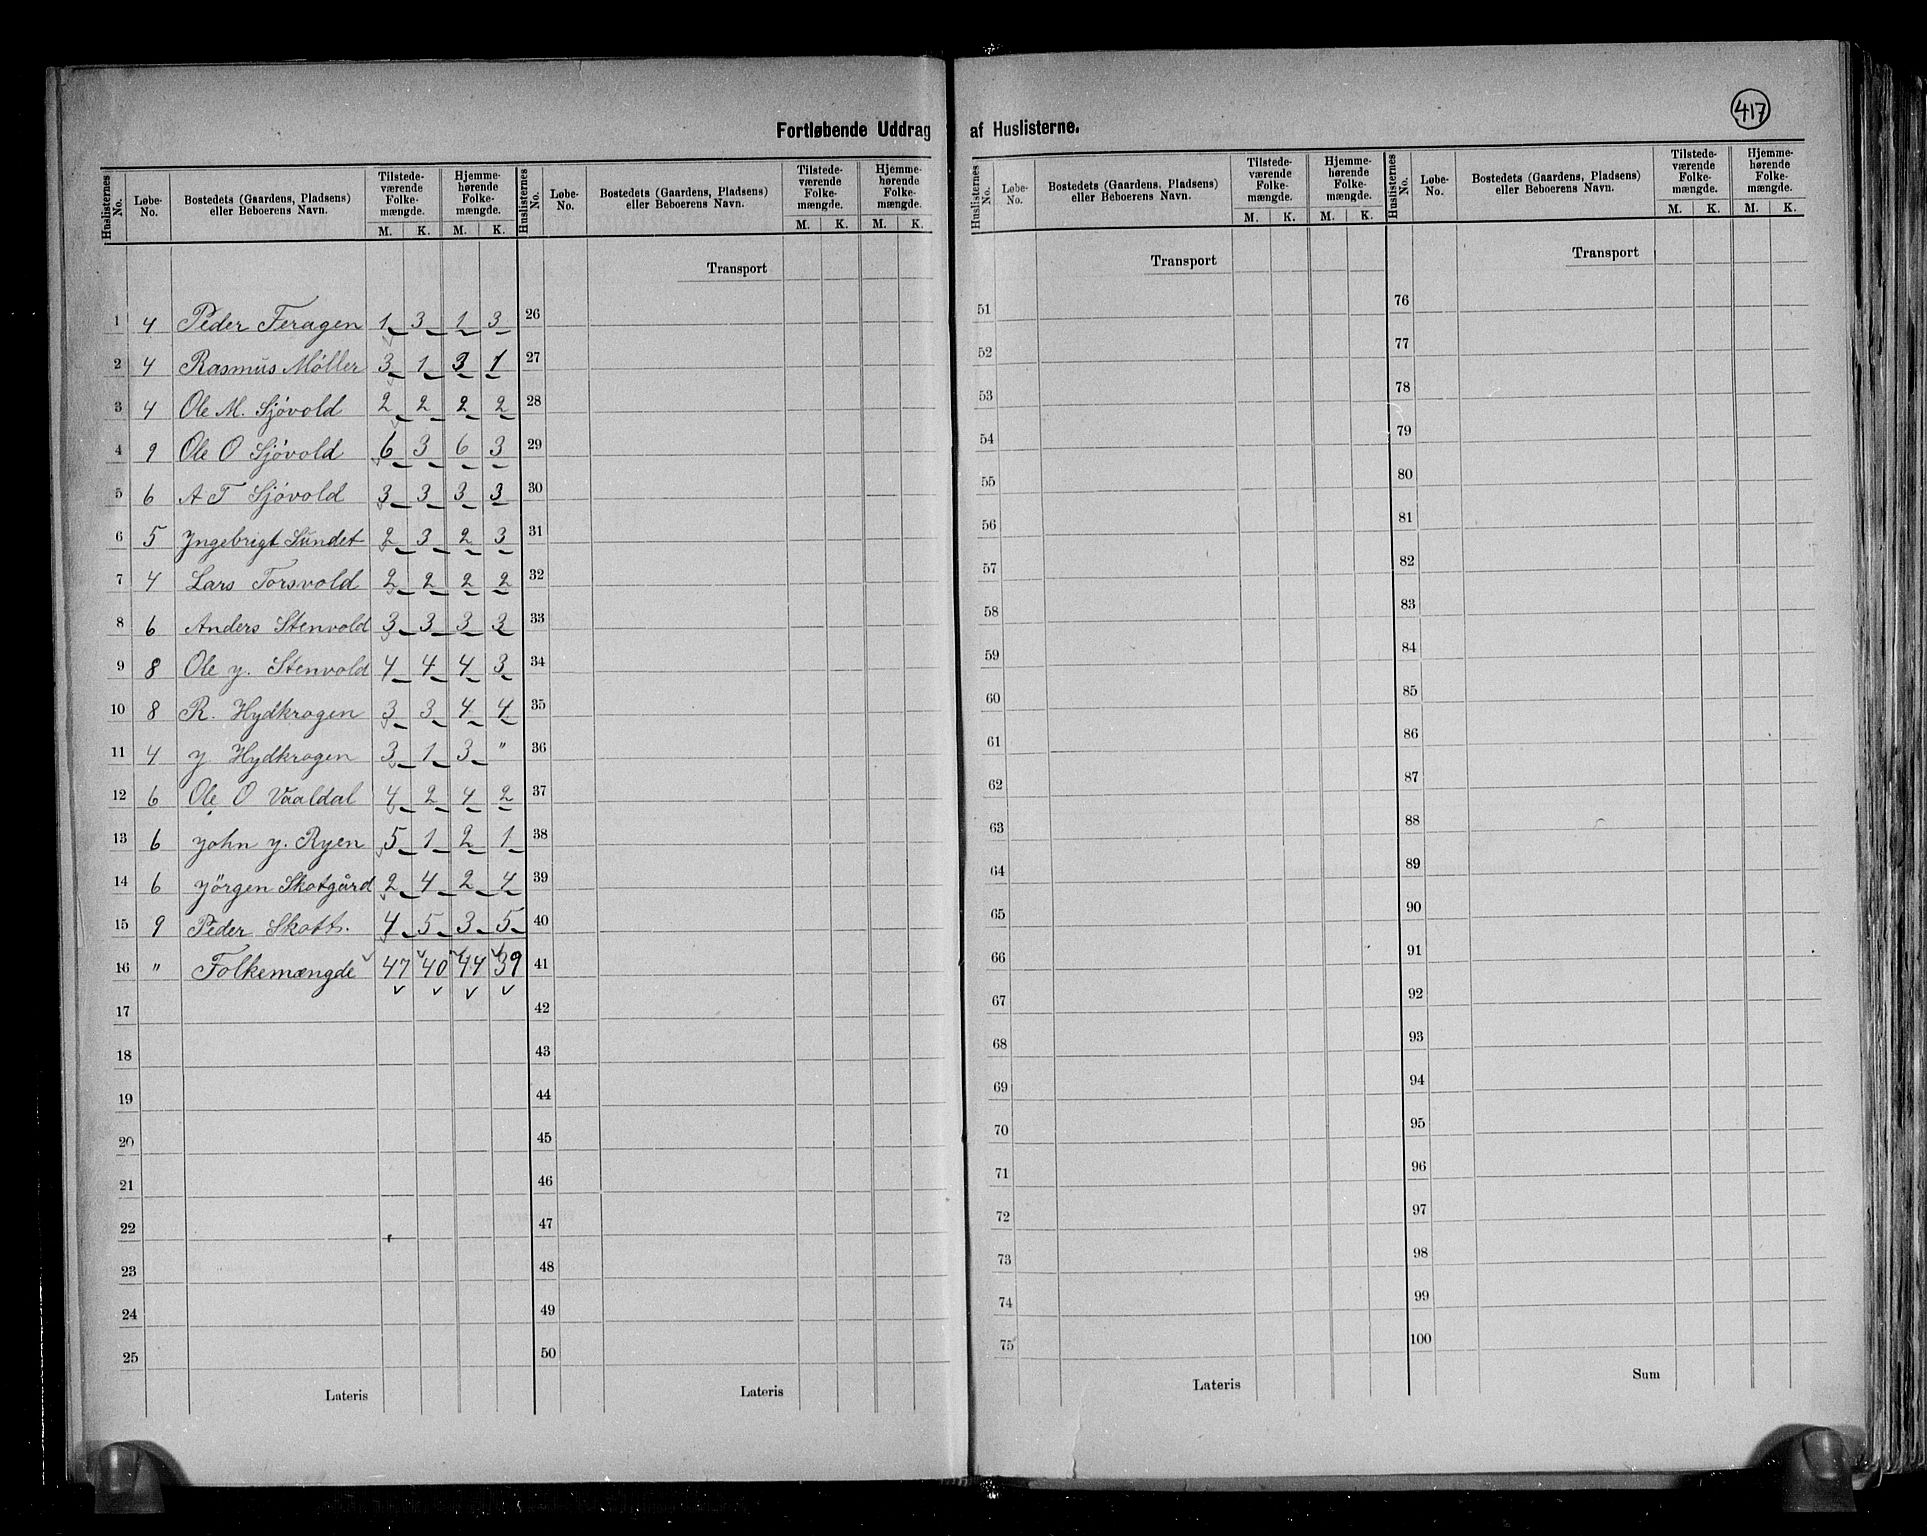 417
Fortløbende Uddrag af Huslisterne.
Huslisternes No. Løbe-No. Bostedets (Gaardens, Pladsens) eller Beboerens Navn. Tilstede-værende Folke-mængde. M. K. Hjemme-hørende Folke-mængde. M. K.
1 4 Peder Feragen 1 3 1 3
2 4 Rasmus Møller 3 1 3 1
3 4 Ole M. Sjøvold 2 2 2 2
4 9 Ole O Sjøvold 6 3 6 3
5 6 A T Sjøvold 3 3 3 3
6 5 Yngebrigt Sundet 2 3 2 3
7 4 Lars Torsvold 2 2 2 2
8 6 Anders Stenvold 3 3 3 3
9 8 Ole y. Stenvold 4 4 4 3
10 8 R. Hydkrogen 3 3 4 4
11 4 y Hydkrogen 3 1 3 "
12 6 Ole O Vaaldal 4 2 4 2
13 6 yohn y. Ryen 5 1 2 1
14 6 yörgen Skotgård 2 4 2 4
15 9 Peder Skott. 4 5 3 5
16 " Folkemængde 47 40 44 39
17
18
19
20
21
22
23
24
25
Lateris
Huslisternes No. Løbe-No. Bostedets (Gaardens, Pladsens) eller Beboerens Navn. Tilstede-værende Folke-mængde. M. K. Hjemme-hørende Folke-mængde. M. K.
Transport
26
27
28
29
30
31
32
33
34
35
36
37
38
39
40
41
42
43
44
45
46
47
48
49
50
Lateris
Huslisternes No. Løbe-No. Bostedets (Gaardens, Pladsens) eller Beboerens Navn. Tilstede-værende Folke-mængde. M. K. Hjemme-hørende Folke-mængde. M. K.
Transport
51
52
53
54
55
56
57
58
59
60
61
62
63
64
65
66
67
68
69
70
71
72
73
74
75
Lateris
Huslisternes No. Løbe-No. Bostedets (Gaardens, Pladsens) eller Beboerens Navn. Tilstede-værende Folke-mængde. M. K. Hjemme-hørende Folke-mængde. M. K.
Transport
76
77
78
79
80
81
82
83
84
85
86
87
88
89
90
91
92
93
94
95
96
97
98
99
100
Sum